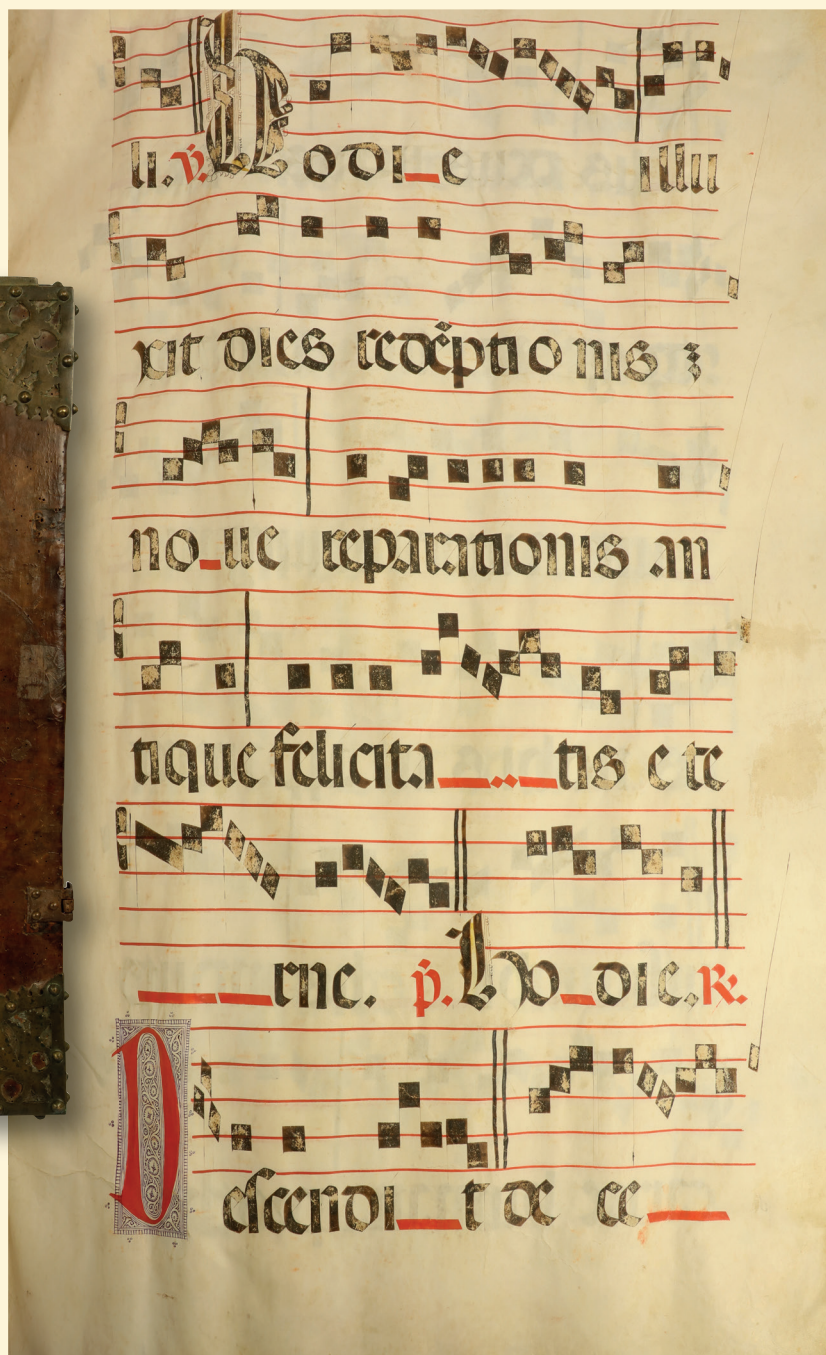 li. v. Hodi_e illu
xit dies redēptionis ⁊
no_ue reparationis an
tique felicita____tis e te
____rne. p. Ho_die. R.
Descendi__t de ce__